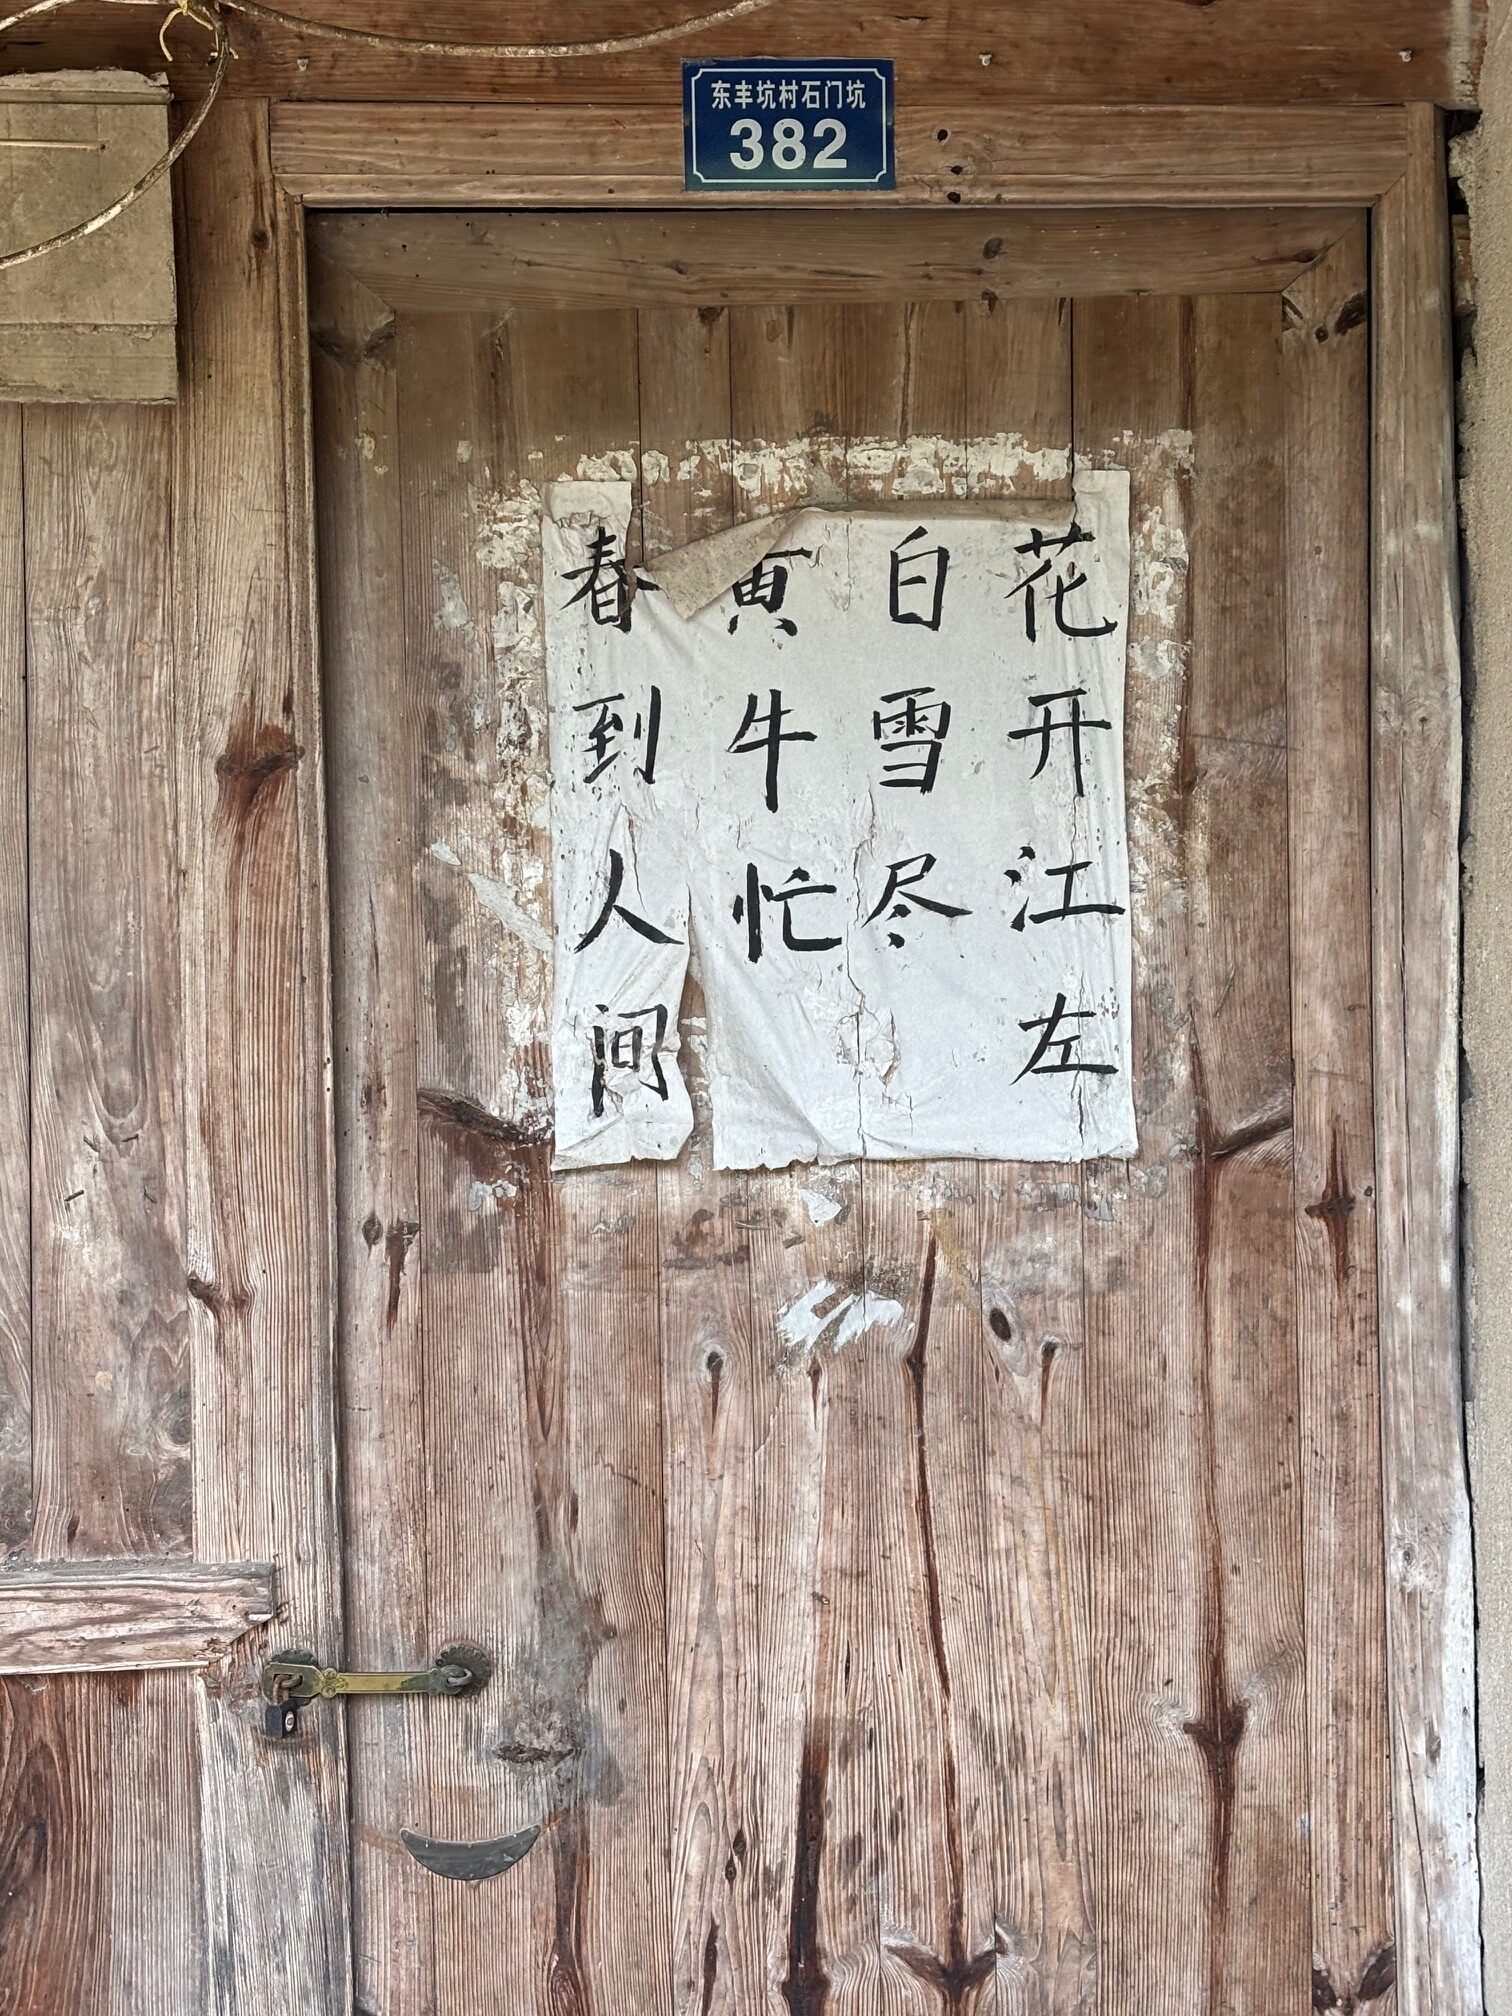 东丰坑村石门坑
382
花开江左
白雪尽
黄牛忙
春到人间